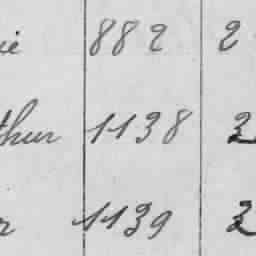 ie 882 2
thur 1138 2
r 1139 2